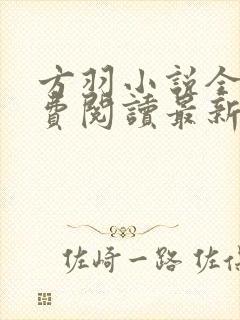 方羽小説全
費閱讀最新
佐崎一路 佐伯